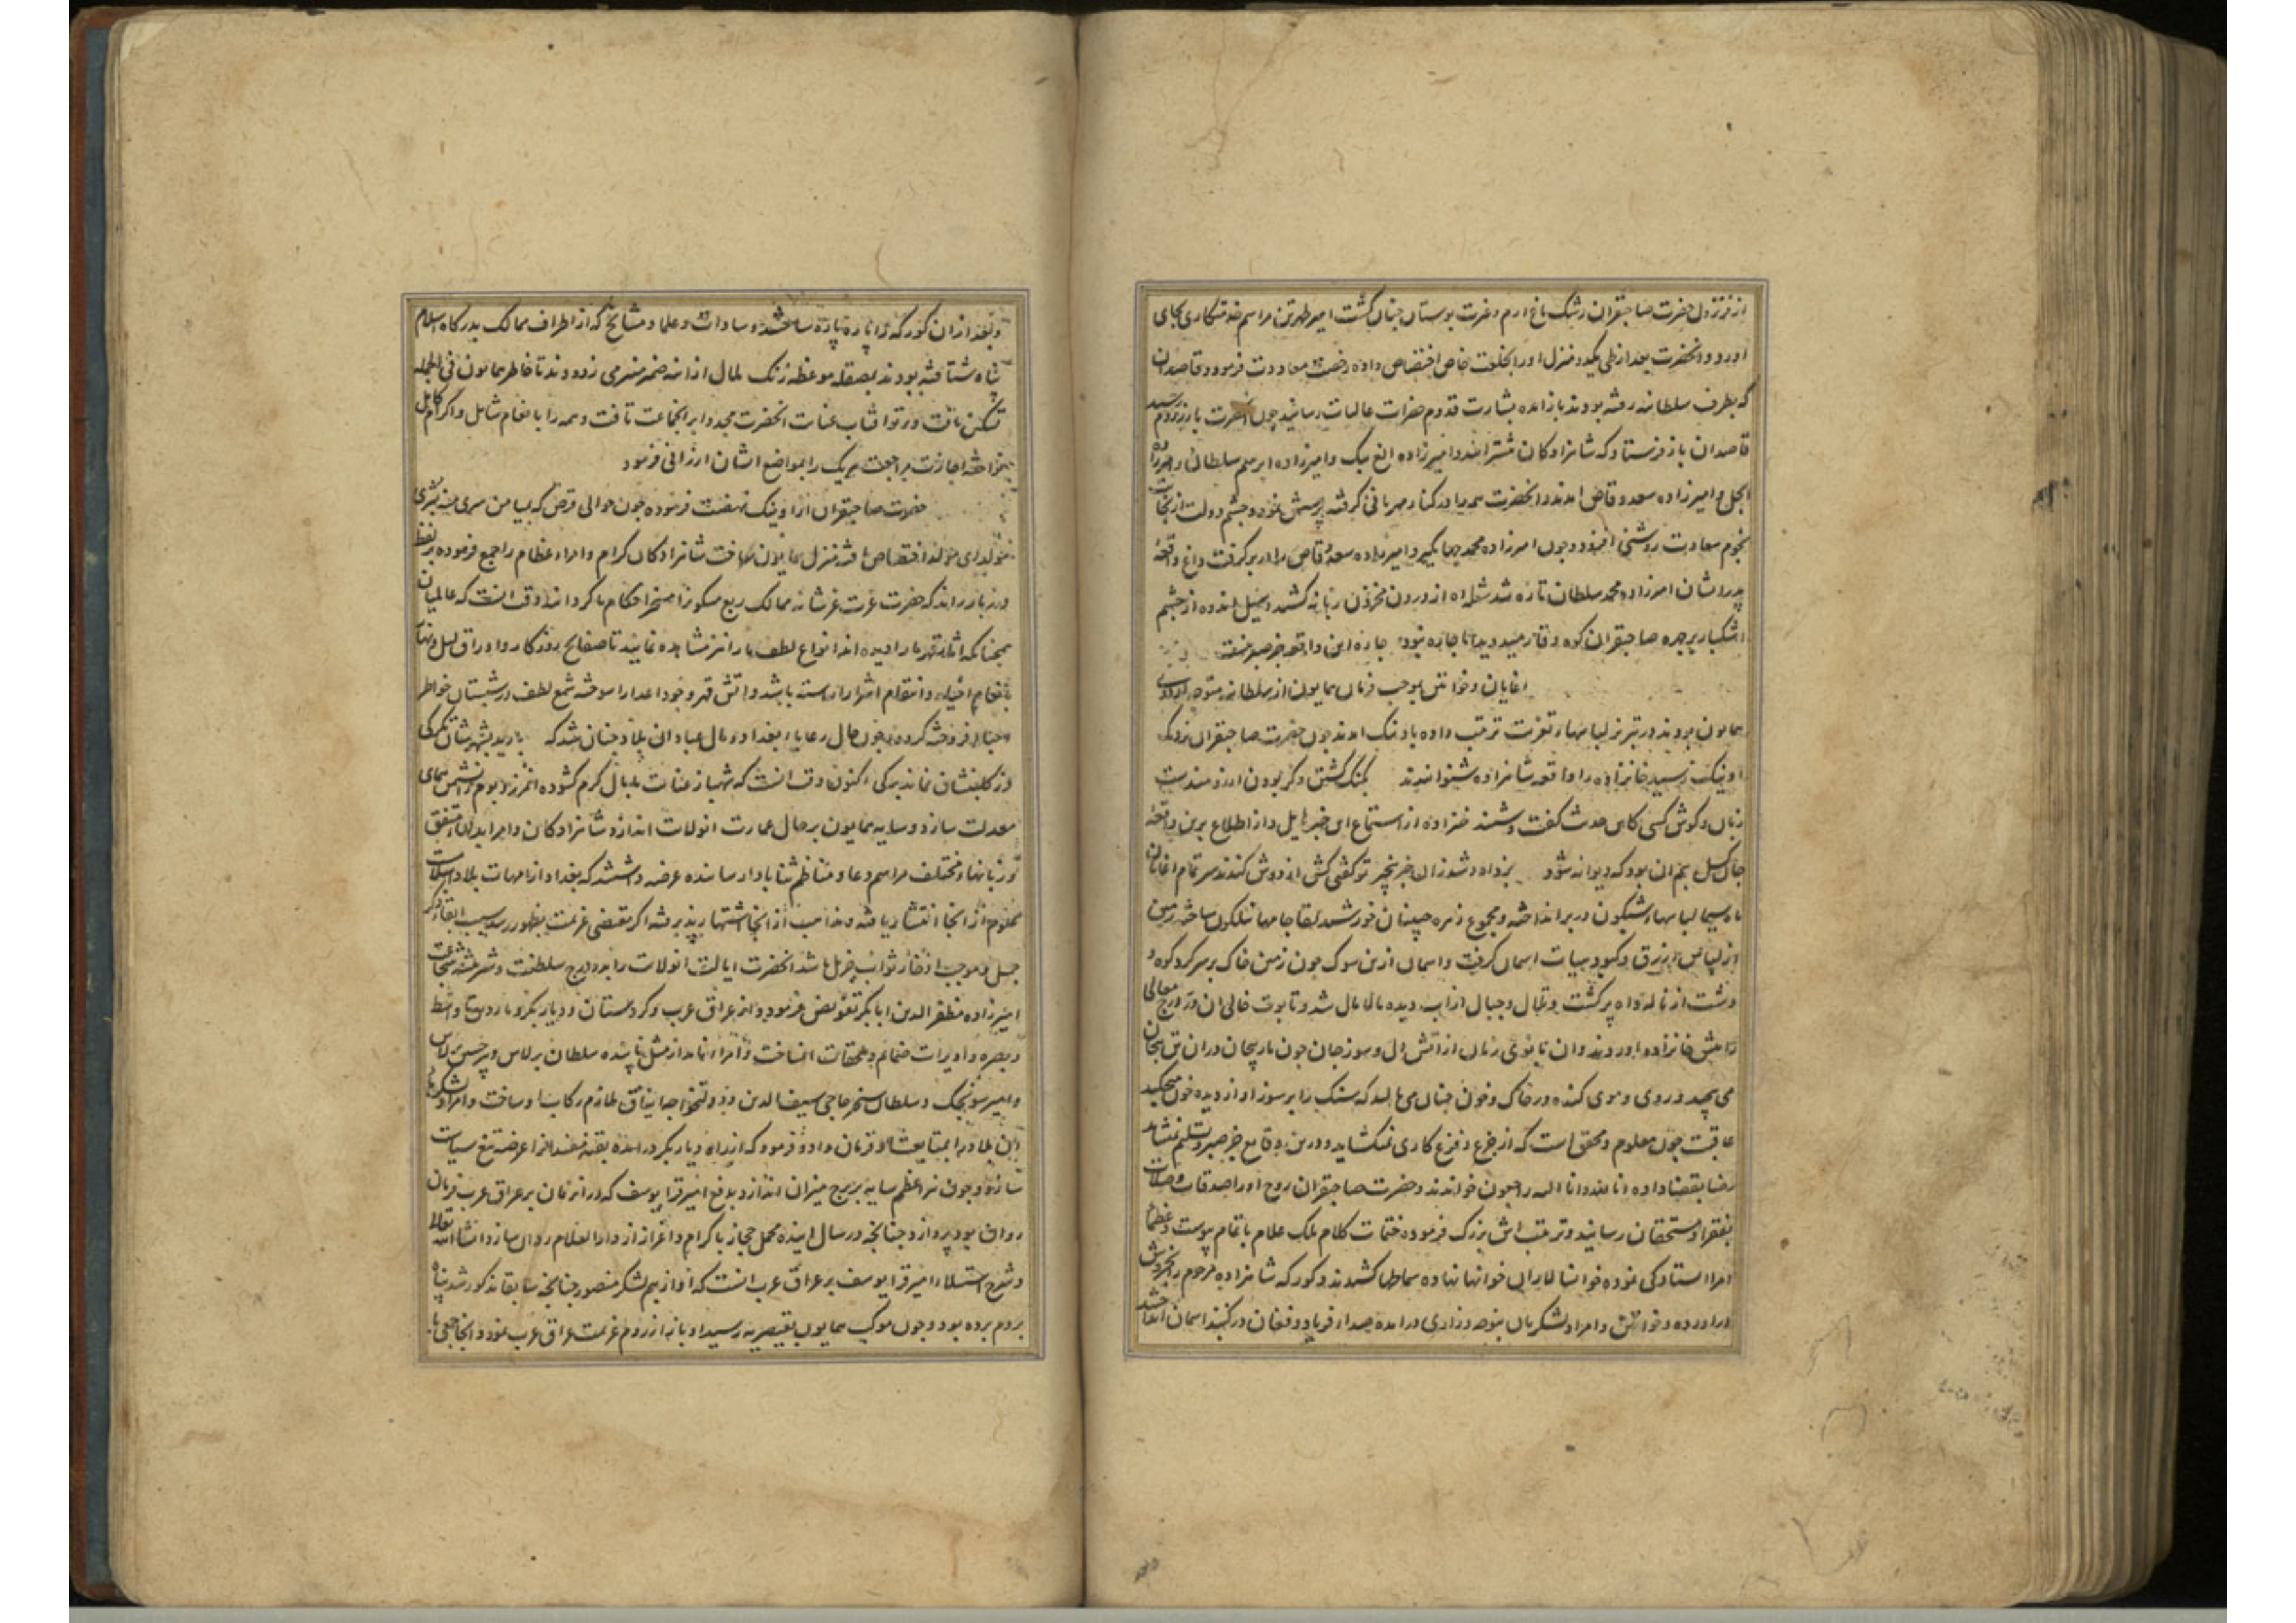 از فر نزول حضرت صاحبقران رشک باغ ارم و غرت بوستان جنان کشت امیر طهرتن مراسم خدمتکاری بجای
اورد و انحضرت بعد از طی یکدو منزل او را بخلعت خاص اختصاص داده رخصت معاودت فرمود و قاصدان
که بطرف سلطانیه رفته بودند باز امده بشارت قدوم حضرات عالیات رسانید چون حضرت بارزروم رسید
قاصدان باز فرستاد که شاهزادکان امیرزاده الغ بیک و امیرزاده ابرهیم سلطان و امیرزاده
ایجل و امیرزاده سعد وقاص امدند انحضرت همه را در کنار مهربانی کرفته پرسش نمود و چشم دولت از
نجوم سعادت روشنی افزود و چون امیرزاده محمد جهانکیر و امیرزاده سعد وقاص را در بر کرفت داغ واقعهٔ
پدر ایشان امیرزاده محمد سلطان تازه شد شعله اه از درون محزون زبانه کشید و سیل اندوه از چشم
اشکبار بر چهره صاحبقران کوه وقار میدوید اما چاره نبود چاره این واقعه جز صبر نیست
اغایان و خواتین بموجب فرمان همایون از سلطانیه متوجه اردوی
همایون بودند در تبریز لباسهای تعزیت ترتیب داده باونیک امدند چون حضرت صاحبقران نزدیک
اونیک رسید خانزاده را واقعه شاهزاده شنوانیدند کنک کشتن و کر بودن ارزومندست
زبان و کوش کسی کاین حدیث کفت و شنید خانزاده از استماع این خبر هایل و از اطلاع برین واقعهٔ
جان کسل بیم ان بود که دیوانه شود بزد اه و شد زان خبر بیخبر تو کفتی کش از دوش کندند سر تمام اغایان
ماه سیما لباسهای شبکون در بر انداخته و مجموع زهره جبینان خورشید لقا جامها نیلکون ساخته زمین
از لباس ازرق و کبود هیات اسمان کرفت و اسمان ازین سوک چون زمین خاک بر سر کرد کوه و
دشت از ناله و اه پر کشت و تلال و جبال از اب دیده مالامال شد و تابوت خالی ان در درج معالی
پیش خانزاده اوردند و ان بانوی زمان از اتش دل و سوز جان چون مار پیچان در ان تن بیجان
می پیچید و روی و موی کنده در خاک و خون چنان می مالید که سنک را بر سوز او از دیده خون میچکید
عاقبت چون معلوم و محقق است که از جزع و فزع کاری نمیکشاید و درین وقایع جز صبر و تسلیم نشاید
رضا بقضا داده انا لله و انا الیه راجعون خواندند و حضرت صاحبقران روح او را صدقات و صلات
بفقرا و مستحقان رسانید و ترتیب اش بزرک فرموده ختمات کلام ملک علام باتمام پیوست و عظما
امرا استادکی نموده خوانسالاران خوانها نهاده سماطها کشیدند و کورکه شاهزاده مرحوم را بخروش
در اورده و خواتین و امرا و لشکریان بنوحه و زاری در امده صدای فریاد و فغان در کنبد اسمان انداختند
و بعد از ان کورکه را پاره پاره ساختند و سادات و علما و مشایخ که از اطراف ممالک بدرکاه اسلام
پناه شتافته بودند بمصقله موعظه زنک ملال از اینه ضمیر منیر می زدودند تا خاطر همایون فی الجمله
تسکین یافت و پرتو افتاب عنایت انحضرت مجددا بر انجماعت تافت و همه را بانعام شامل و اکرام کامل
بنواخته اجازت مراجعت هر یک را بمواضع ایشان ارزانی فرمود
حضرت صاحبقران از اونیک نهضت فرموده چون حوالی قرص که بمیامن
اختصاص یافته منزل همایون ساخت شاهزادکان کرام و امراء عظام را جمع فرموده بر لفظ
دربار راند که حضرت عزت عزشانه ممالک ربع مسکون را مسخر احکام ما کردانید وقت انست که عالمیان
همچنانکه اثار قهر ما را دیده اند انواع لطف ما را نیز مشاهده نمایند تا صفایح روزکار و اوراق لیل و نهار
بانعام اخیار و انتقام اشرار اراسته باشد و اتش قهر وجود اعدا را سوخته شمع لطف در شبستان خواطر
احباب افروخته کردد و چون حال رعایای بغداد و مال عبادان بلاد چنان شد که
وز کلبنشان نماند برکی اکنون وقت انست که شهباز عنایت ما بال کرم کشوده انمرز و بوم را نشیمن همای
معدلت سازد و سایه همایون بر حال عمارت انولایت اندازد شاهزادکان و امرا بدل متفق
و زبانهاء مختلف مراسم دعا و مناظم ثنا بادا رسانیده عرضه داشتند که بغداد از امهات بلاد اسلامست
علوم از انجا انتشار یافته و مذاهب از انجا اشتهار پذیرفته اکر مقتضی عزیمت بظهور رسد سبب ابقاء ذکر
جمیل و موجب ادخار ثواب جزیل باشد انحضرت ایالت انولایت را بدری درج سلطنت و شیر بیشه شجاعت
امیرزاده مظفر الدین ابابکر تفویض فرمود و از عراق عرب و کردستان و دیار بکر و ماردین تا واسط
و بصره و اویرات ضمایم و ملحقات انساخت و امراء نامدار مثل پاینده سلطان برلاس و پیر حسین برلاس
و امیر سونجک و سلطان سنجر حاجی سیف الدین و دولتخواجه ایناق ملازم رکاب او ساخت و امرا و لشکرها
این بلاد را بمتابعت او فرمان داد و فرمود که از راه دیار بکر در امده بقیه مفسدانرا عرضه تیغ سیاست
سازد و چون نیر اعظم سایه ببرج میزان اندازد بدفع امیر قرایوسف که در انزمان بر عراق عرب فرمان
روا بود پردازد چنانچه در سال اینده محمل حجاز باکرام و اعزاز از دار السلام روان سازد انشا الله تعالی
و شرح استیلاء امیر قرایوسف بر عراق عرب انست که او از بیم لشکر منصور چنانچه سابقا مذکور شد پناه
بروم برده بود و چون موکب همایون بقیصریه رسید او باز از روم عزیمت عراق عرب نمود و انجا جمعی با